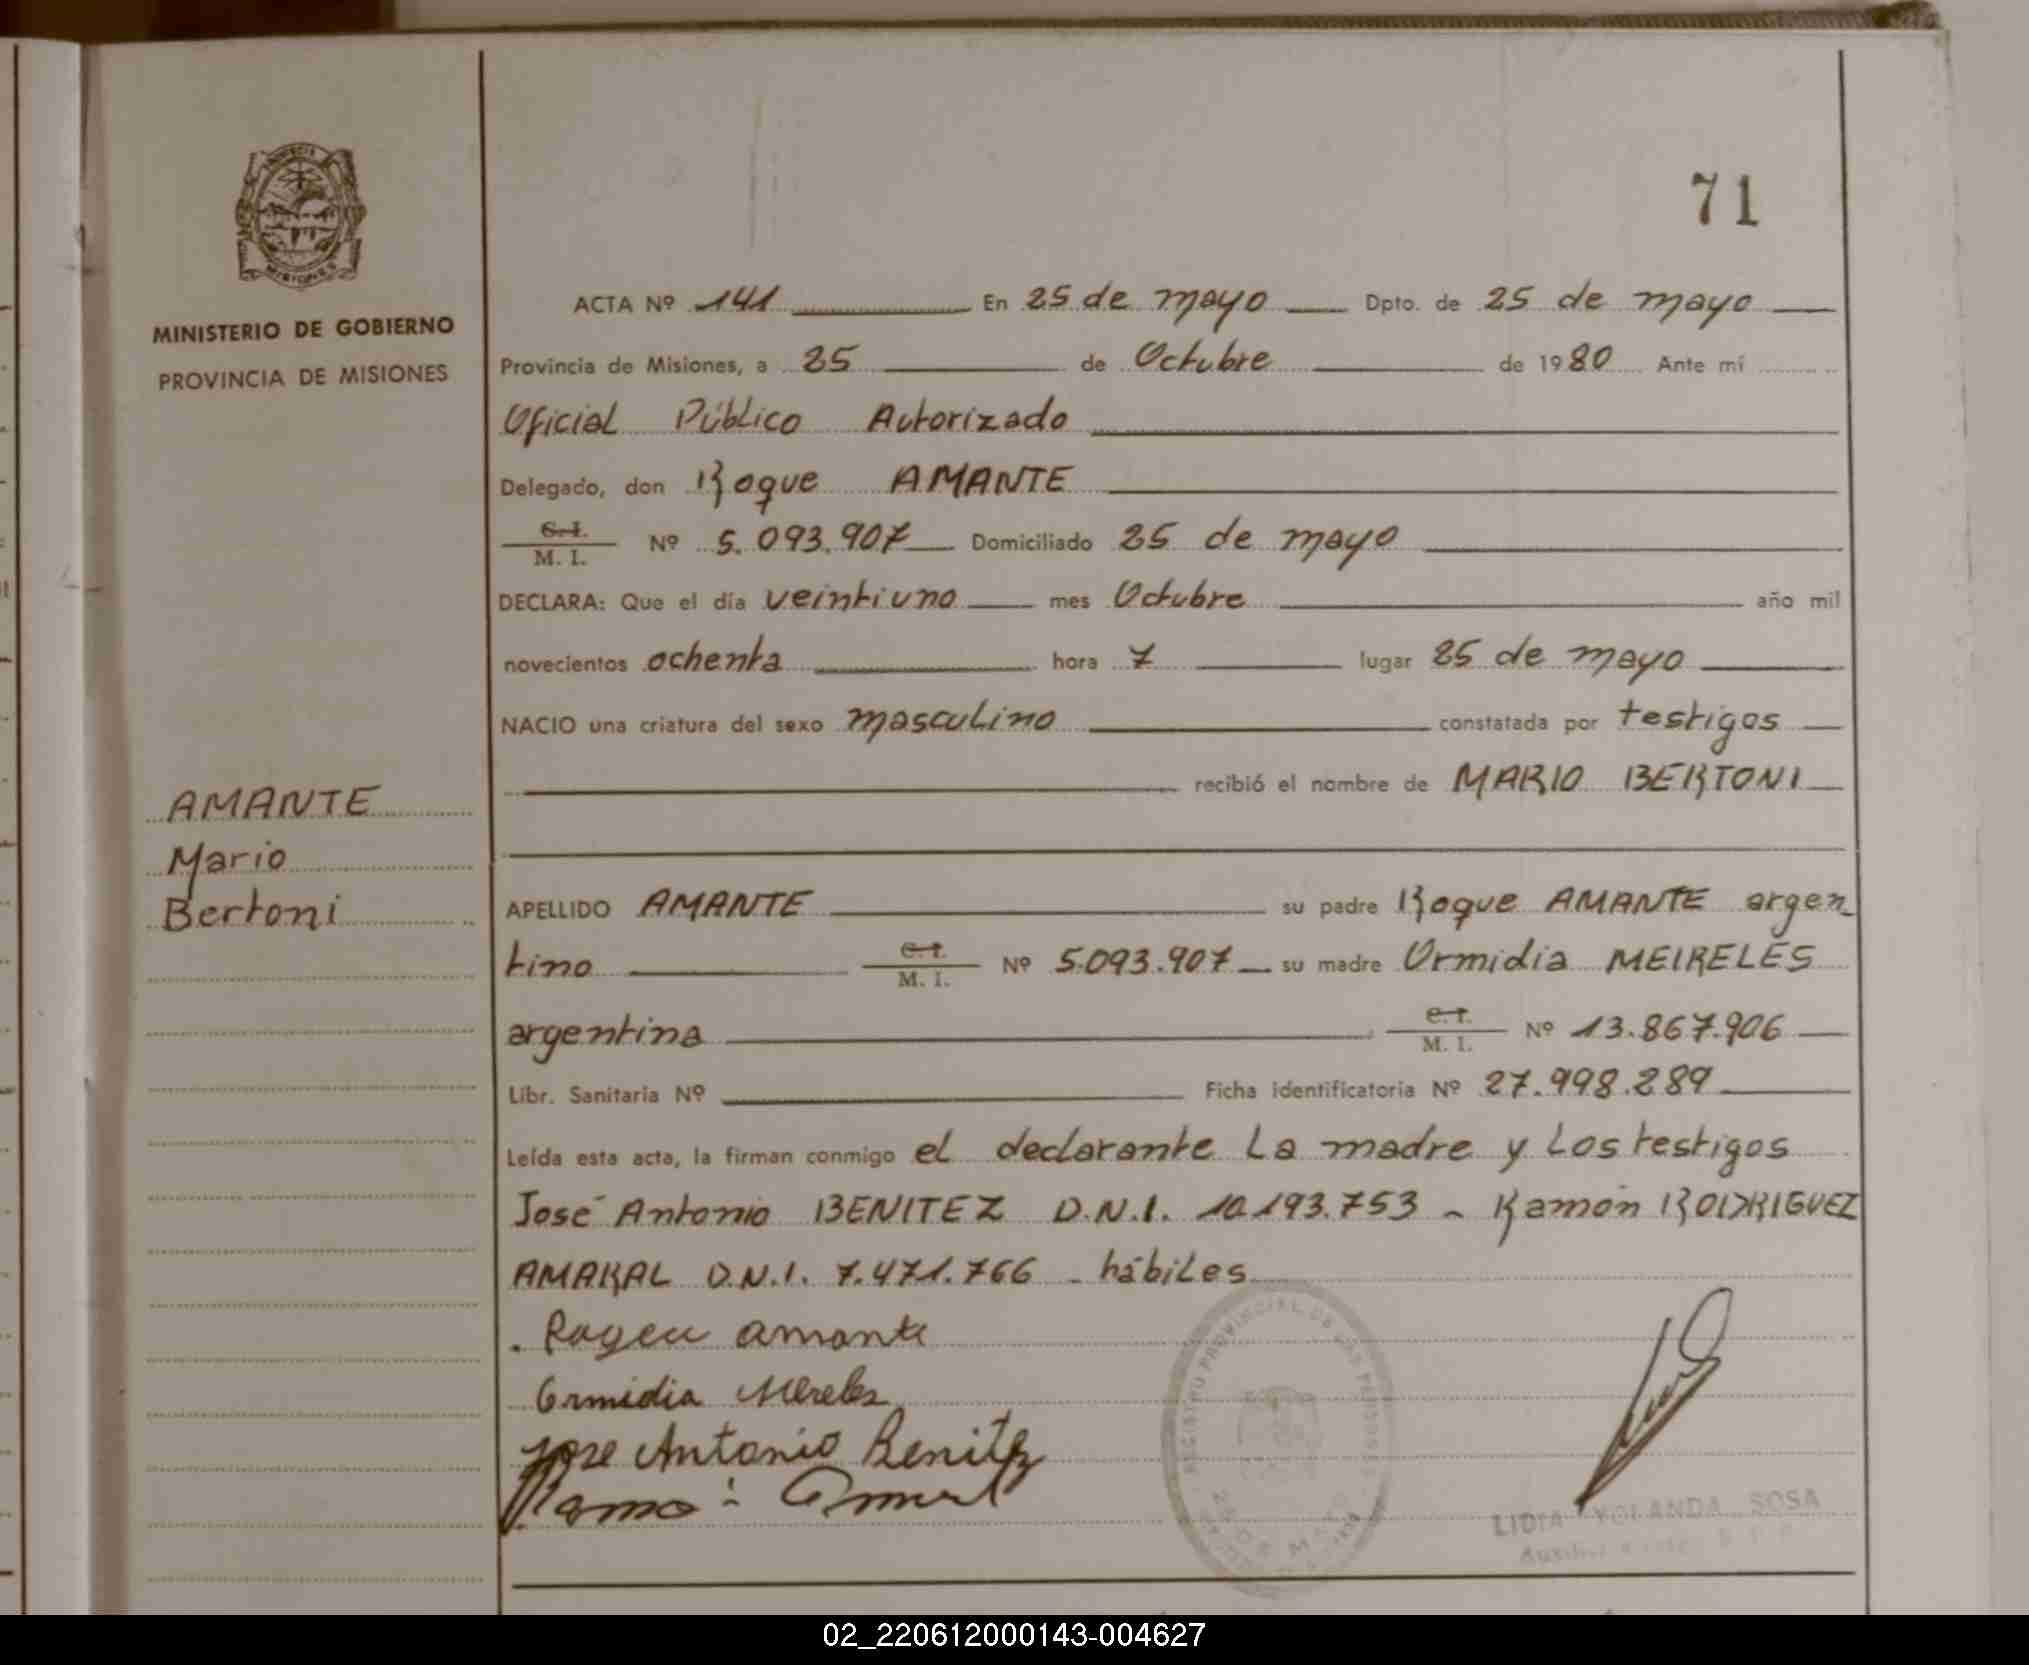 71
MINISTERIO DE GOBIERNO
PROVINCIA DE MISIONES
AMANTE
Mario
Bertoni
ACTA Nº 141 En 25 de mayo Dpto. de 25 de mayo
Provincia de Misiones, a 25 de Octubre de 1980 Ante mí
Oficial Público Autorizado
Delegado, don Roque AMANTE
C.I. M. I. Nº 5.093.907 Domiciliado 25 de mayo
DECLARA: Que el día veintiuno mes Octubre año mil
novecientos ochenta hora 7 lugar 25 de mayo
NACIO una criatura del sexo masculino constatada por testigos
recibió el nombre de MARIO BERTONI
APELLIDO AMANTE su padre Roque AMANTE argen
tino C.I. M. I. Nº 5.093.907 su madre Ormidia MEIRELES
argentina C.I. M. I. Nº 13.867.906
Libr. Sanitaria Nº Ficha identificatoria Nº 27.998.289
Leída esta acta, la firman conmigo el declarante La madre y Los testigos
José Antonio BENITEZ D.N.I. 10.193.753 - Ramón RODRIGUEZ
AMARAL D.N.I. 7.471.766 - hábiles
amante
Ormidia Mereles
Jose Antonio Benitez
REGISTRO PROVINCIAL DE LAS PERSONAS
25 DE MAYO
LIDIA YOLANDA SOSA
02_220612000143-004627